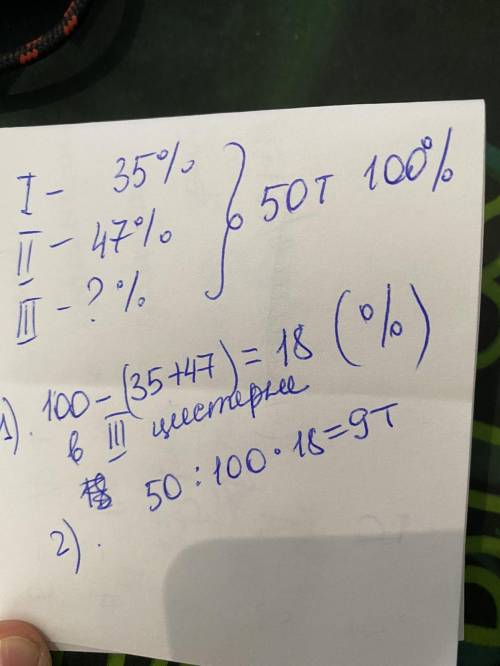 I - 35%
II - 47% } 50т 100%
III - ? %
1). 100 - (35+47) = 18 (%)
в III цистерне
50 : 100 · 18 = 9т
2) .